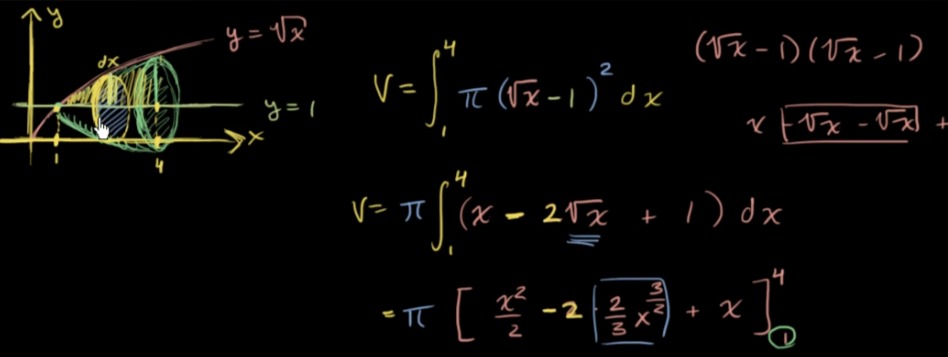 y
y = √x
dx
y = 1
x
1
4
V = ∫₁⁴ π (√x − 1)² dx
(√x − 1)(√x − 1)
x −√x − √x +
V = π ∫₁⁴ (x − 2√x + 1) dx
= π [ x²/2 − 2 (2/3 x^(3/2)) + x ]₁⁴